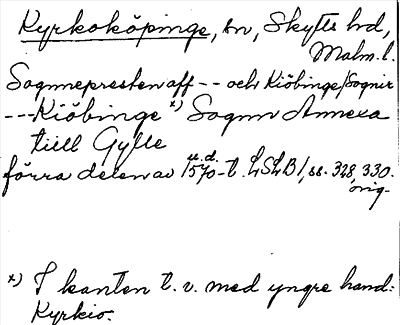 Kyrkoköpinge, sn, Skytts hd,
Malm.l.
Sognnepresten aff -- och Kiöbinge/Sognir
---Kiöbinge x) Sognn Annexa
tiill Gylle
förra delen av u.d. 1570-t. LSLB 1, ss. 328, 330.
orig.
x) I kanten t.v. med yngre hand:
Kyrkio: